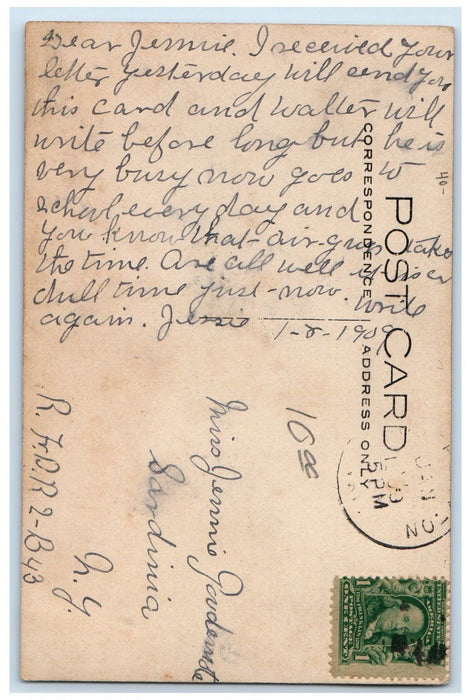 Dear Jennie. I received your
letter yesterday will send you
this card and Walter will
write before long but he is
very busy now goes to
school every day and
you know that air-gun takes
the time. Are all well it is a
dull time just-now. Write
again. Jessie 1-8-1909
40-
POST CARD
CORRESPONDENCE
ADDRESS ONLY
JAN
5 PM
10 00
Miss Jennie
Sardinia
N.Y.
R.F.D.R 2-B43
FRANKLIN
ONE CENT
1
1